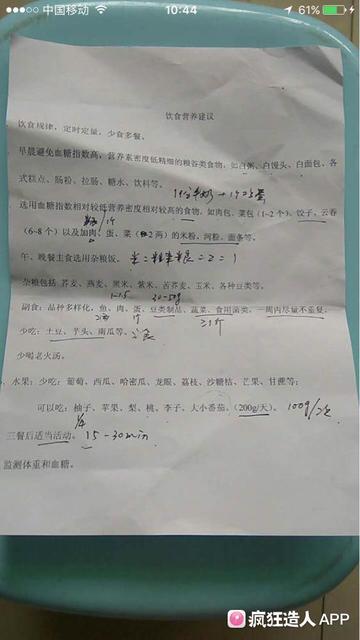 中国移动 10:44 61%
饮食营养建议
饮食规律，定时定量，少食多餐。
早晨避免血糖指数高，营养素密度低精细的粮谷类食物，如白粥、白馒头、白面包、各
式糕点、肠粉、拉肠、糖水、饮料等。
选用血糖指数相对较低营养密度相对较高的食物，如肉包、菜包（1~2个）、饺子、云吞
（6~8个）以及加肉、蛋、菜（2两）的米粉、河粉、面条等。
午、晚餐主食选用杂粮饭。
杂粮包括 荞麦、燕麦、黑米、紫米、苦荞麦、玉米、各种豆类等。
副食：品种多样化，鱼、肉、蛋、豆类制品、蔬菜、食用菌类，一周内尽量不重复。
少吃：土豆、芋头、南瓜等。
少喝老火汤。
水果：少吃：葡萄、西瓜、哈密瓜、龙眼、荔枝、沙糖桔、芒果、甘蔗等；
可以吃：柚子、苹果、梨、桃、李子、大小番茄。（200g/天）。100g/次
三餐后适当活动。15-30min
监测体重和血糖。
疯狂造人 APP